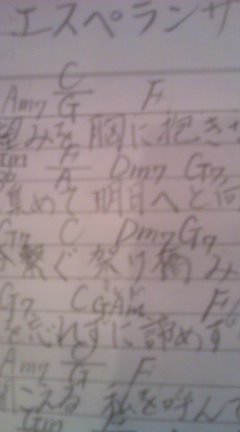 エスペランサ
Am7 C/G F
望みを胸に抱き
F/A Dm7 G7
集めて明日へと向
G7 C Dm7 G7
繋ぐ架け橋み
G7 C G Am F
を忘れずに諦めず
Am7 C/G F
こえる 私を呼んで
Gm